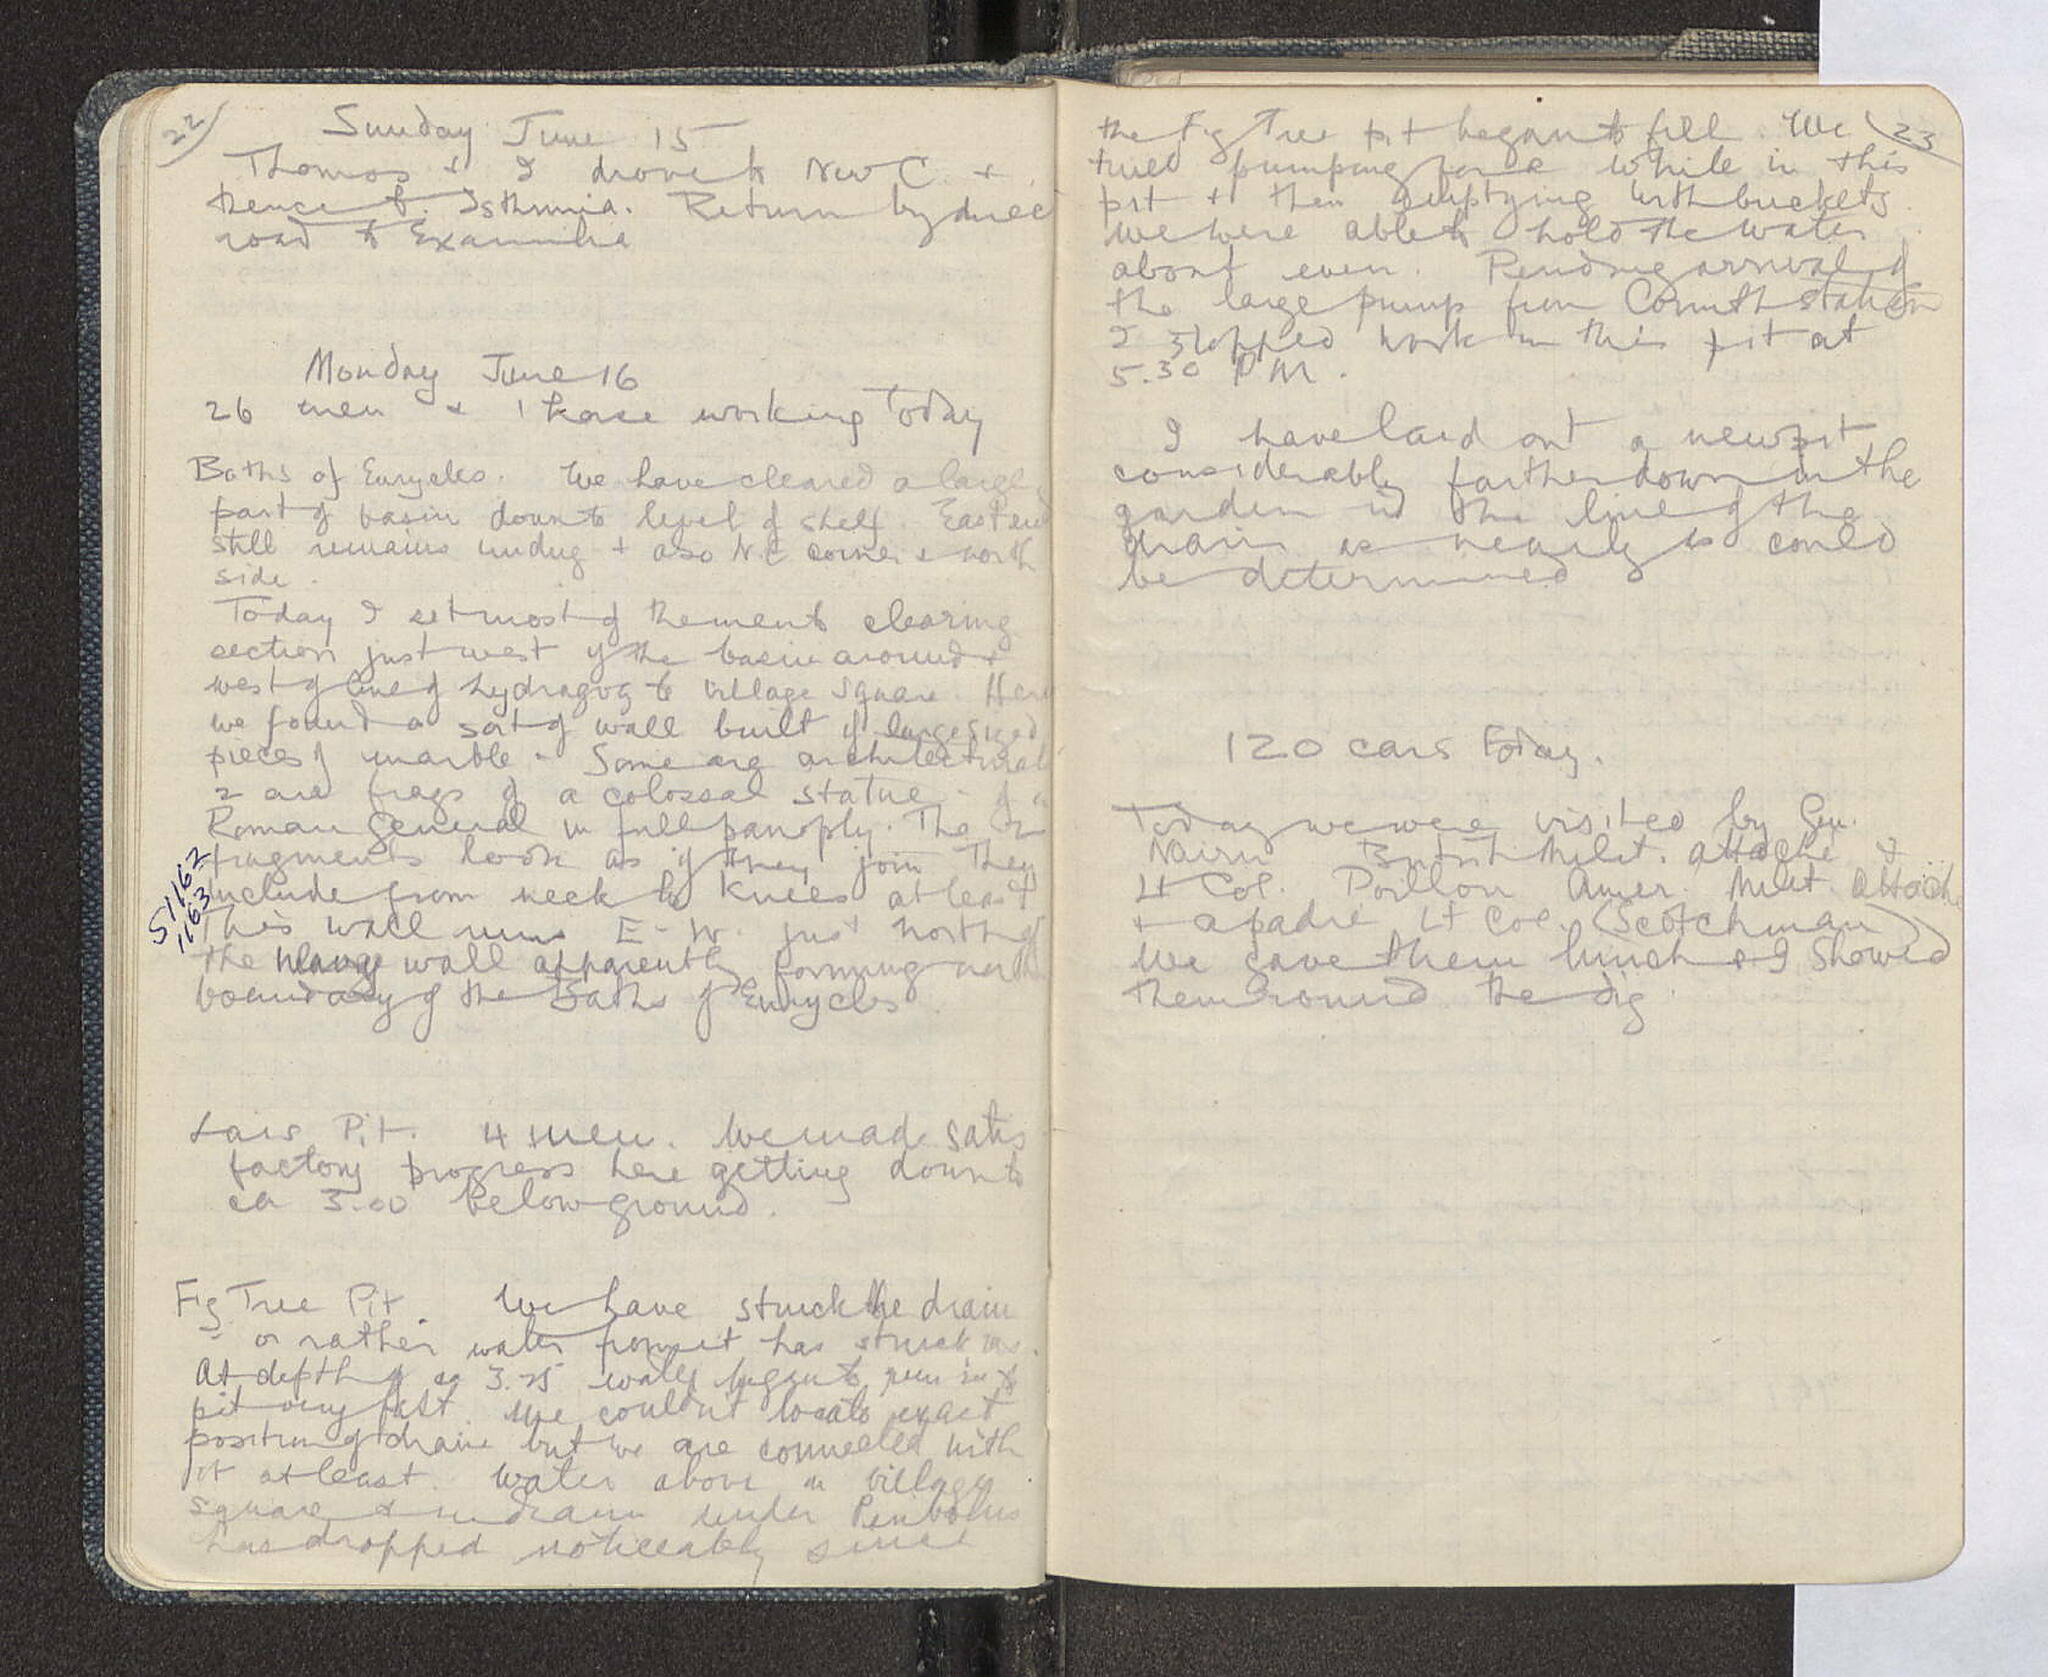 22
Sunday June 15
Thomas & I drove to New C. &
thence to Isthmia. Return by direc
road to Examilia
Monday June 16
26 men & 1 horse working Today
Baths of Eurycles. We have cleared a large
part of basin down to level of shelf. East end
still remains undug & also N E corner & north
side.
Today I set most of the men to clearing
section just west of the basin around &
west of line of hydragog to village square. Here
we found a sort of wall built of large sized
pieces of marble - Some are architectural
2 are frags of a colossal statue - of a
Roman General in full panoply. The 2
fragments look as if they join They
include from neck to knees at least
S 1162
1163
This wall runs E-W. just north of
the heavy wall apparently forming north
boundary of the Baths of Eurycles.
Lais Pit. 4 men. We made satis
factory progress here getting down to
ca 3.00 below ground.
Fig Tree Pit. We have struck the drain
- or rather water from it has struck us.
At depth of ca 3.25 water began to run into
pit very fast. We couldn't locate exact
position of drain but we are connected with
it at least. Water above in village
square & in drain under Peribolus
has dropped noticeably since
23
the Fig Tree pit began to fill. We
tried pumping for a while in this
pit & then emptying with buckets.
We were able to hold the water
about even. Pending arrival of
the large pump from Corinth station
I stopped work in this pit at
5.30 P M.
I have laid out a new pit
considerably farther down in the
garden in the line of the
drain as nearly as could
be determined
120 cars Today.
Today we were visited by Gen.
Nairn British Milit. attache &
Lt Col. Amer. Milit. attach
& a padre Lt Col. (Scotchman)
We gave them lunch & I showed
them round the dig.